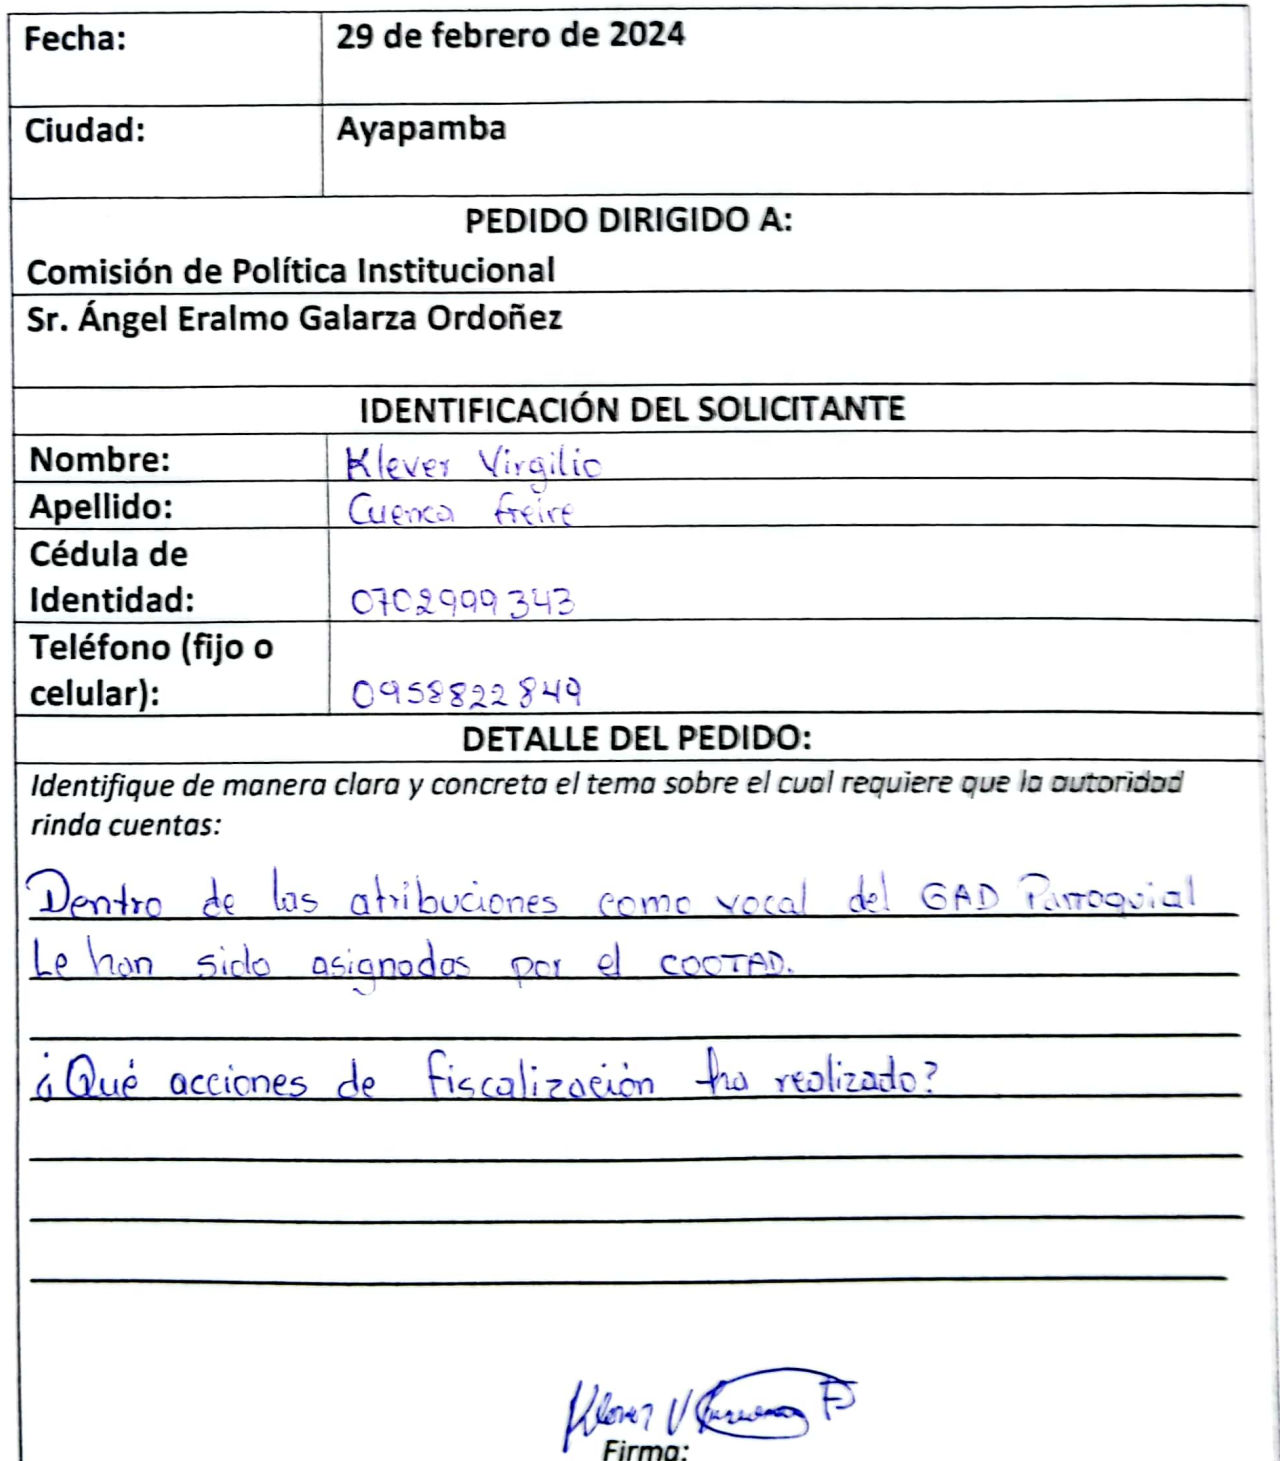 Fecha: 29 de febrero de 2024
Ciudad: Ayapamba
PEDIDO DIRIGIDO A:
Comisión de Política Institucional
Sr. Ángel Eralmo Galarza Ordoñez
IDENTIFICACIÓN DEL SOLICITANTE
Nombre: Klever Virgilio
Apellido: Cuenca freire
Cédula de
Identidad: 0702999343
Teléfono (fijo o
celular): 0958822849
DETALLE DEL PEDIDO:
Identifique de manera clara y concreta el tema sobre el cual requiere que la autoridad
rinda cuentas:
Dentro de las atribuciones como vocal del GAD Parroquial
Le han sido asignadas por el COOTAD.
¿Qué acciones de fiscalización ha realizado?
Klever V Cuenca F
Firma: